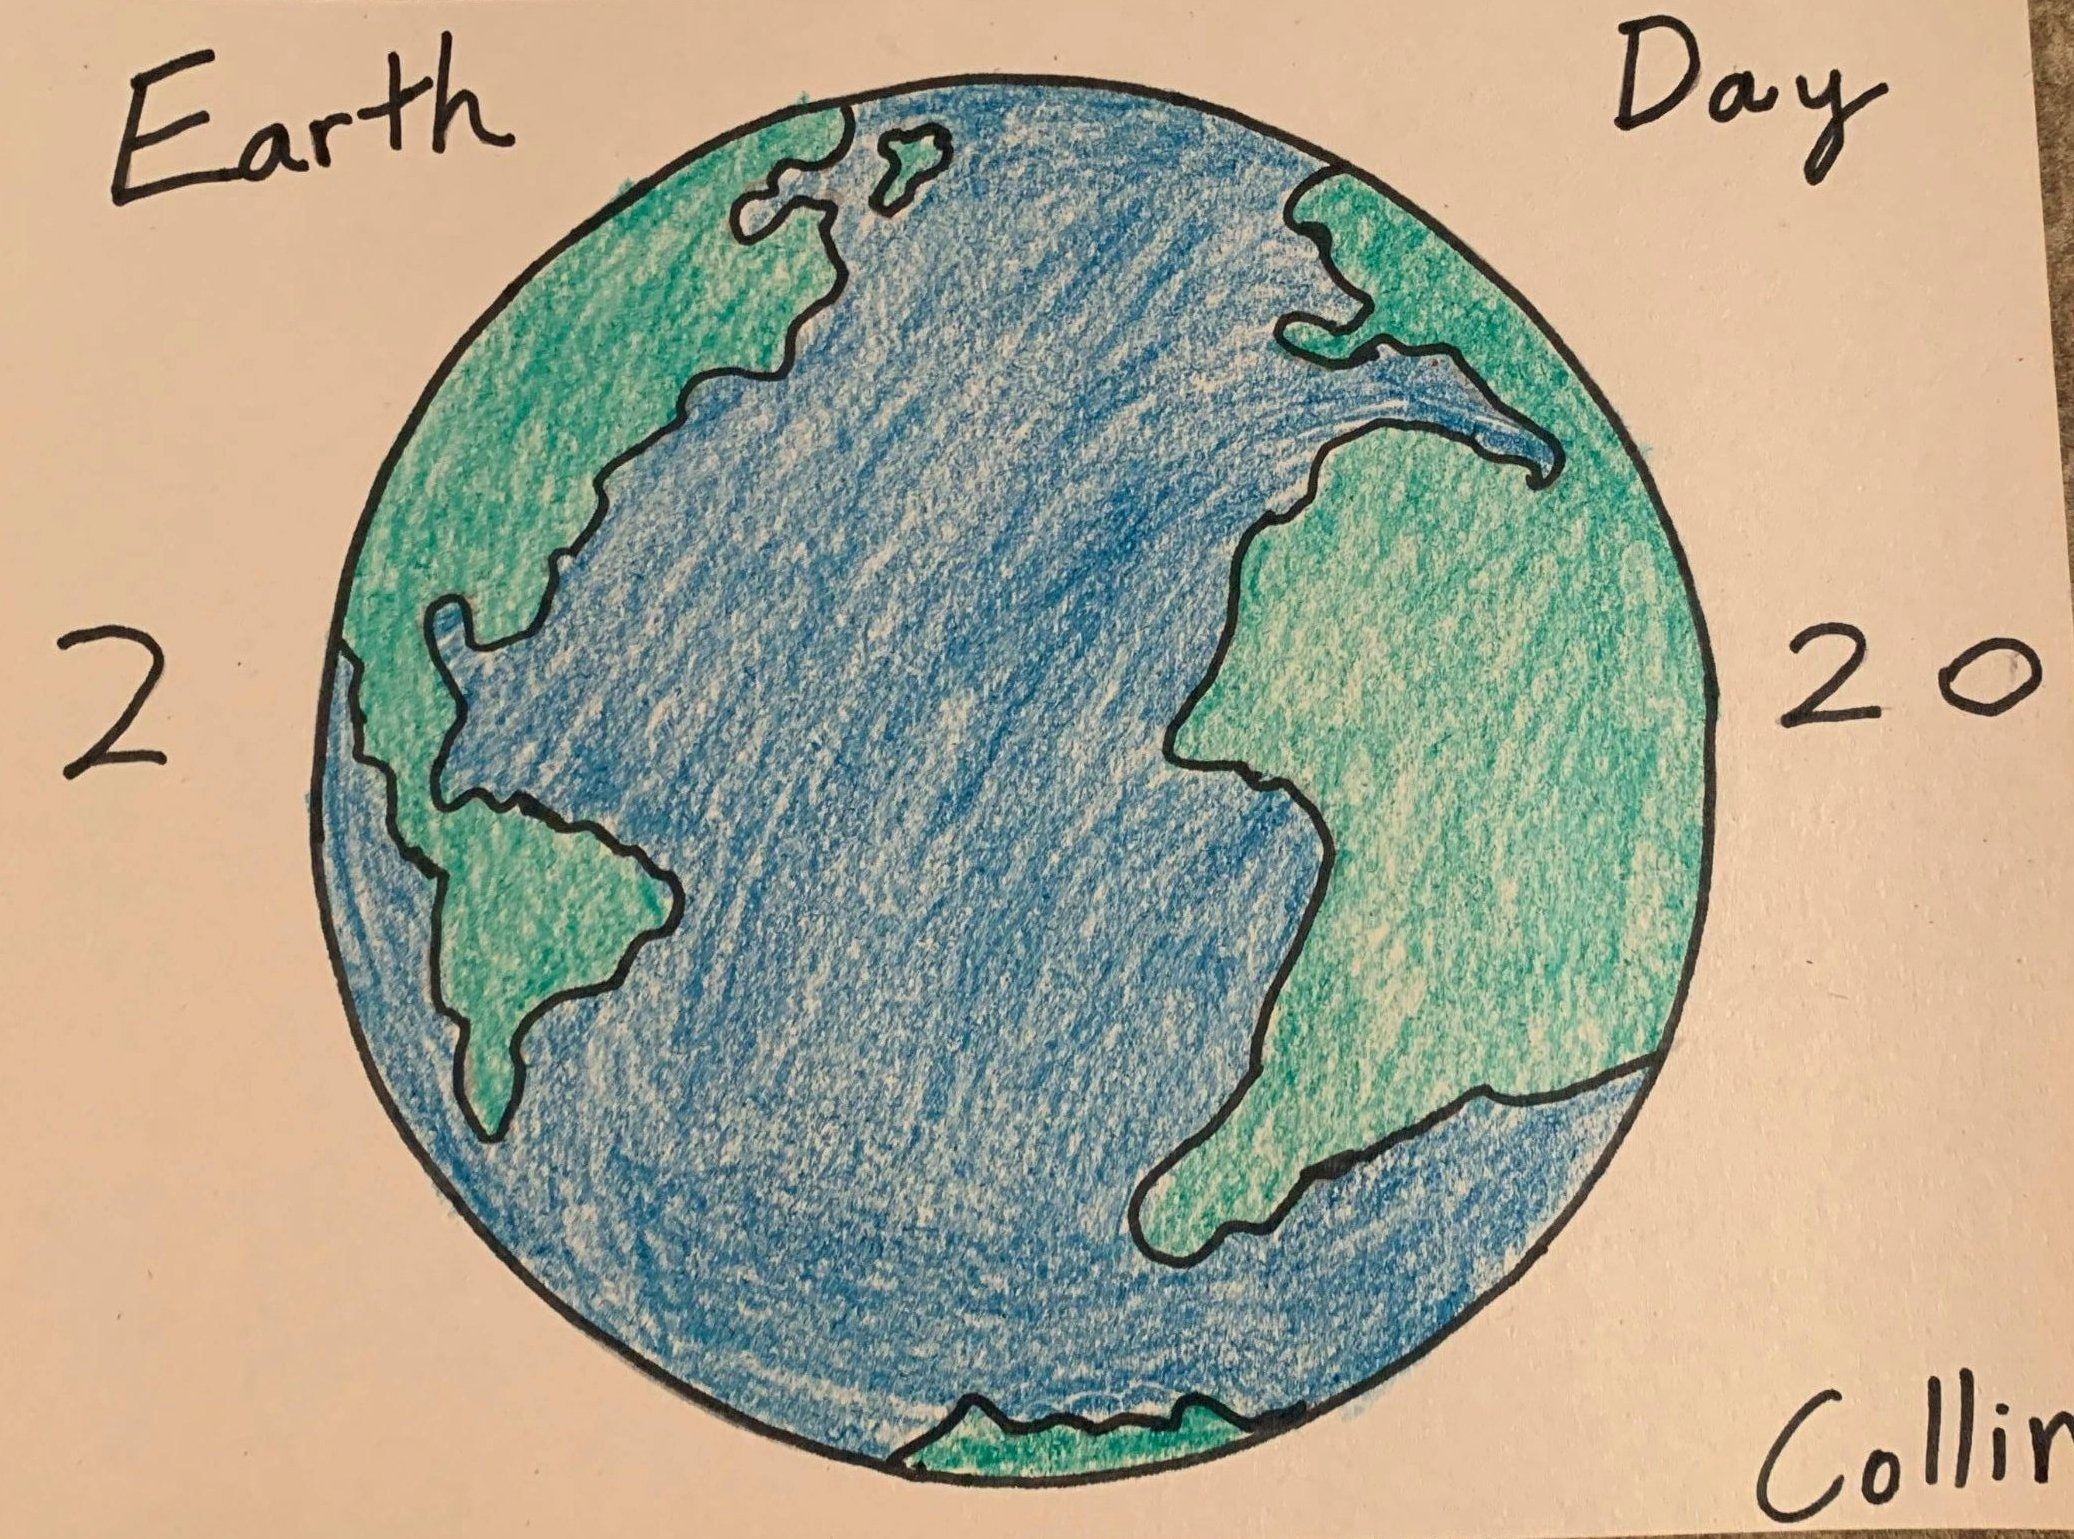 Earth Day
2 20
Collin